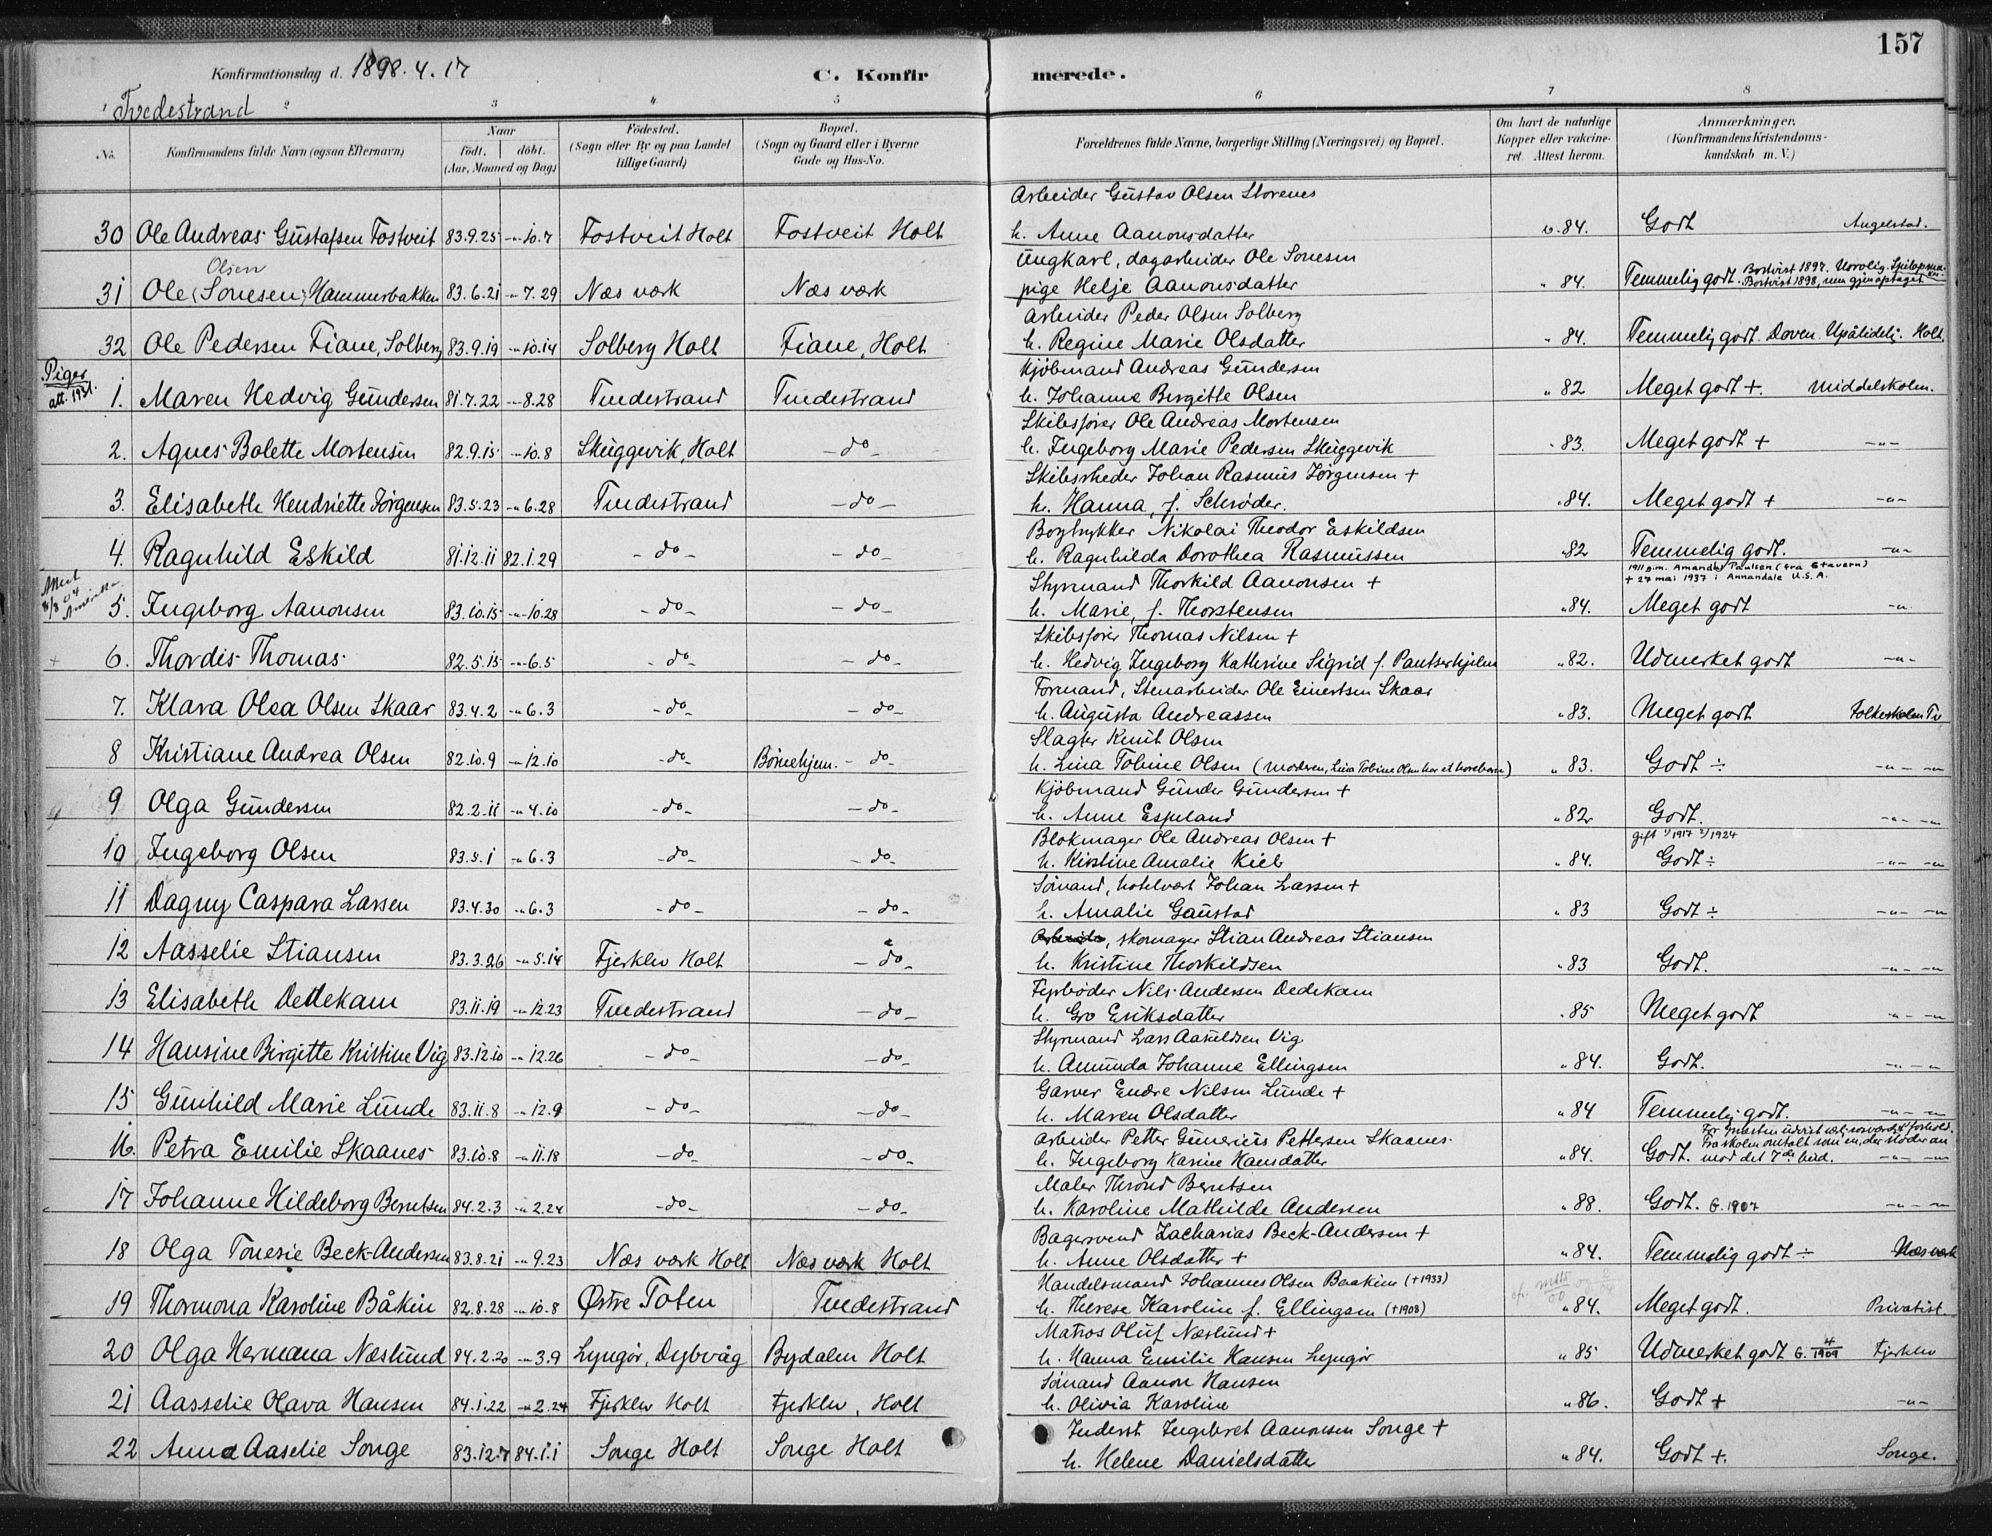 157
Konfirmationsdag d. 1898.4.17
C. Konfir merede.
Tvedestrand
1 2 3 4 5 6 7 8
No. Konfirmandens fulde Navn (ogsaa Efternavn) Naar født. døbt. (Aar, Maaned og Dag) Fødested. (Sogn eller By og paa Landet tillige Gaard) Bopæl. (Sogn og Gaard eller i Byerne Gade og Hus-No. Forældrenes fulde Navne, borgerlige Stilling (Næringsvei) og Bopæl. Om havt de naturlige Kopper eller vakcineret. Attest herom. Anmærkninger. (Konfirmandens Kristendomskundskab m. V.)
Arbeider Gustav Olsen Storenes
30 Ole Andreas Gustafsen Fostveit 83.9.25 -"-10.7 Fostveit Holt Fostveit Holt h. Anne Aanonsdatter v. 84. Godt Angelstad.
Olsen Ungkarl, dagarbeider Ole Sonesen
31 Ole (Sonesen) Hammerbakken 83.6.21 -"-7.29 Næs værk Næs værk pige Helje Aanonsdatter " 84. Temmelig godt. Bortvist 1897. Urolig. Bortvist 1898, men gjenoptaget
Arbeider Peder Olsen Solberg
32 Ole Pedersen Fiane, Solberg 83.9.19 -"-10.14 Solberg Holt Fiane, Holt h. Regine Marie Olsdatter " 84. Temmelig godt. Doven. Upålidelig. Holt.
Piger
att. 1931. Kjøbmand Andreas Gundersen
1. Maren Hedvig Gundersen 81.7.22 -"-8.28 Tvedestrand Tvedestrand h. Johanne Birgitte Olsen " 82 Meget godt +. Middelskolen.
Skibsfører Ole Andreas Mortensen
2. Agnes Bolette Mortensen 82.9.15 -"-10.8 Skuggevik, Holt -do- h. Ingeborg Marie Pedersen Skuggevik " 83. Meget godt + -"-
Skibsrheder Johan Rasmus Jörgensen +
3. Elisabeth Hendriette Jörgensen 83.5.23 -"-6.28 Tvedestrand -do- h. Hanna, f. Schrøder. " 84. Meget godt + -"-
Bogtrykker Nikolai Theodor Eskildsen
4. Ragnhild Eskild 81.12.11 82.1.29 -do- -do- h. Ragnhilda Dorothea Rasmussen " 82 Temmelig godt. -"-
1911 g.m. Amandus Paulsen (fra Stavern)
+ 27 mai 1937 i Annandale U.S.A.
Styrmand Thorkild Aanonsen +
5. Ingeborg Aanonsen 83.10.15 -"-10.28 -do- -do- h. Marie, f. Thorstensen " 84. Meget godt -"-
Skibsfører Thomas Nilsen +
+ 6. Thordis Thomas 82.5.15 -"-6.5 -do- -do- h. Hedvig Ingeborg Kathrine Sigrid f. Pantserhjelm " 82. Udmerket godt -"-
Formand, Stenarbeider Ole Einertsen Skaar
7. Klara Olea Olsen Skaar 83.4.2 -"-6.3 -do- -do- h. Augusta Andreassen " 83. Meget godt Folkeskolen Tv.
Slagter Knut Olsen
8 Kristiane Andrea Olsen 82.10.9 -"-12.10 -do- Børnehjem. - do- h. Lina Tobine Olsen (moderen, Lina Tobine Olsen har et horebarn) " 83. Godt ÷ -"- -"-
Kjöbmand Gunder Gundersen +
9 Olga Gundersen 82.2.11 -"-4.10 -do- -do- h. Anne Espeland " 82 Godt. -"- -"-
gift 1/1917 2/1924
Blokmager Ole Andreas Olsen +
10 Ingeborg Olsen 83.5.1 -"-6.3 -do- -do- h. Kirstine Amalie Kieb " 84. Godt ÷ -"- -"-
Sömand, hotelvært Johan Larsen +
11 Dagny Caspara Larsen 83.4.30 -"-6.3 -do- -do- h. Amalie Gaustad " 83 Godt ÷ -"- -"-
Arbeider, skomager Stian Andreas Stiansen
12 Aasselie Stiansen 83.3.26 -"-5.14 Fjerklev Holt -do- h. Kristine Thorkildsen " 83 Godt. -"- -"-
Fyrbøder Nils Andersen Dedekam
13 Elisabeth Dedekam 83.11.19 -"-12.23 Tvedestrand -do- h. Gro Eriksdatter " 85 Meget godt -"- -"-
Styrmand Lars Aanildsen Vig
14 Hansine Birgitte Kristine Vig 83.12.10 -"-12.26 -do- -do- h. Amunda Johanne Ellingsen " 84. Godt. -"- -"-
Garver Endre Nilsen Lunde +
15 Gunhild Marie Lunde 83.11.8 -"-12.9 -do- -do- h. Maren Olsdatter " 84 Temmelig godt. -"- -"-
Arbeider Petter Gunerius Pettersen Skaanes
16. Petra Emilie Skaanes 83.10.8 -"-11.18 -do- -do- h. Ingeborg Karine Hansdatter " 84. Godt. Fra skolen omtalt som en, der støder an mod det 7de bud. -"- -"-
Maler Thrond Berntsen
17 Johanne Hildeborg Berntsen 84.2.3 -"-2.24 -do- -do- h. Karoline Mathilde Andersen " 88. Godt. G. 1907 -"- -"-
Bagersvend Zacharias Beck-Andersen +
18 Olga Tonesie Beck-Andersen 83.8.21 -"-9.23 Næs værk Holt Næs værk Holt h. Anne Olsdatter + " 84. Temmelig godt ÷ Næs værk
Handelsmand Johannes Olsen Baakin (+1933)
19 Thormona Karoline Båkin 82.8.28 -"-10.8 Østre Toten Tvedestrand h. Therese Karoline f. Ellingsen (+1908) " 84. Meget godt. Privatist.
Matros Oluf Næslund +
20 Olga Hermana Næslund 84.2.20 -"-3.9 Lyngør, Dybvåg Bydalen Holt h. Hanna Emilie Hansen Lyngør " 85 Udmerket godt G. 4/1909 Fjerklev
Sömand Aanon Hansen
21 Aasselie Olava Hansen 84.1.22 -"-2.24 Fjerklev Holt Fjerklev, Holt h. Olivia Karoline " 86. Godt + -"-
Inderst Ingebret Aanonsen Songe +
22 Anna Aaselie Songe 83.12.7 84.1.1 Songe Holt Songe Holt h. Helene Danielsdatter " 84. Godt +. Songe.